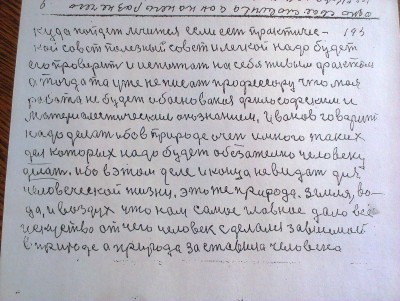 куда пойдет мчится если есть практичес- 193
кой совет полезный совет и легкой надо будет
его проверить и испытат на себя живым фрактом
а тогда та уже не писат профессору что моя
работа не будет обоснован философским и
материалестическим ознанием, Иванов говарит
надо делат ибо в природе очен много таких
дел которых надо будет обезателно человеку
делат. ибо в этом деле и конца не видат для
человеческой жизни. это же природа. земля, во-
да, и воздух что нам самое главное дало все
искуство от чего человек сделался зависимой
в природе а природа заставила человека